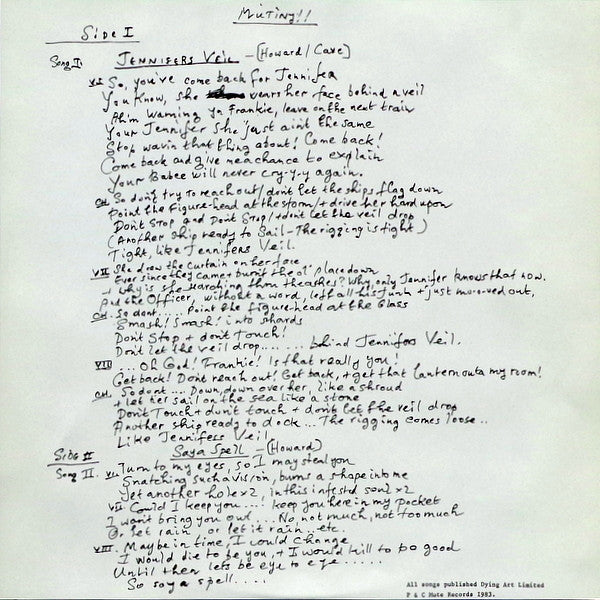 MUTINY!!
SIDE I
Song I: JENNIFERS VEIL - (Howard/Cave)
V.I So, you've come back for Jennifer
You know, she wears her face behind a veil
Ah'm warning ya Frankie, leave on the next train
Your Jennifer she just aint the same
Stop wavin that thing about! Come back!
Come back and give me a chance to explain
Your Babee will never cry-y-y again.
CH. So don't try to reach out/dont let the ships flag down
Point the figure-head at the storm/+ drive her hard upon
Dont Stop and Dont Stop/+ dont let the veil drop
(Another Ship ready to Sail - The rigging is tight)
Tight, like Jennifers Veil.
V.II She drew the curtain on her face
Ever since they came + burnt the ol' place down
+ why is she searching thru the ashes? Why, only Jennifer knows that now.
And the Officer, without a word, left all his junk + just mo-o-oved out,
CH. So dont.... Point the figure-head at the Glass
Smash! Smash! into shards
Dont Stop + dont Touch!
Dont let the veil drop....... behind Jennifers Veil.
V.III ... Oh God! Frankie! Is that really you!
Get back! Dont reach out! Get back, + get that lantern outa my room!
CH. So dont.... Down, down over her, like a shroud
+ let her sail on the sea like a stone
Dont Touch + dun't touch + dont let the veil drop
Another ship ready to dock... The rigging comes loose..
Like Jennifers Veil
SIDE II
Song II. Say a Spell - (Howard)
V.I. Turn to my eyes, so I may steal you
Snatching such a vision, burns a shape into me
Yet another hole x2, in this infestd soul x2
V.II Could I keep you...! keep you here in my pocket
I want bring you out.... No, not much, not too much
Or let rain, or let it rain.. etc.
V.III. Maybe in time, I could change
I would die to be you, + I would kill to be good
Until then lets be eye to eye ......
So say a spell.....
All songs published Dying Art Limited
P & C Mute Records 1983.